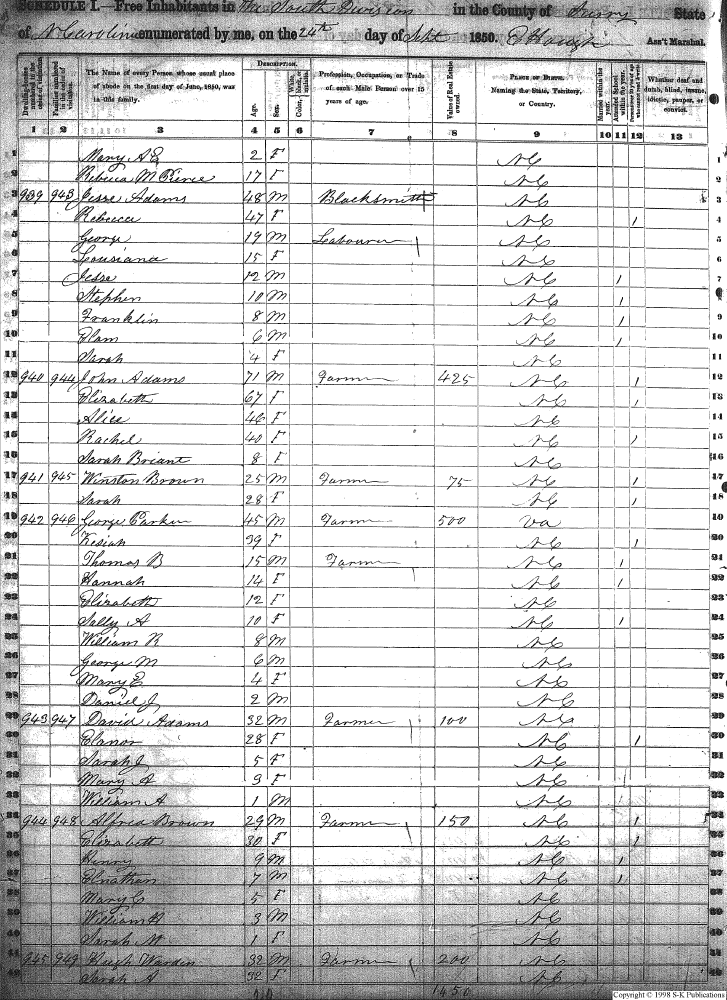 SCHEDULE I.—Free Inhabitants in The South Division in the County of Surry State
of N Carolina enumerated by me, on the 24th day of Sept 1850. Ass't Marshal.
DESCRIPTION.
Dwelling-houses numbered in the order of visitation.
Families numbered in the order of visitation.
The Name of every Person whose usual place of abode on the first day of June, 1850, was in this family.
Age.
Sex.
White, black, or mulatto. Color,
Profession, Occupation, or Trade of each Male Person over 15 years of age.
Value of Real Estate owned.
PLACE OF BIRTH. Naming the State, Territory, or Country.
Married within the year.
Attended School within the year.
Whether deaf and dumb, blind, insane, idiotic, pauper, or convict.
1 2 3 4 5 6 7 8 9 10 11 12 13
1 Mary A E 2 F NC
2 Rebecca M Pierce 17 F NC 2
3 939 943 Jesse Adams 48 M Blacksmith NC
4 Rebecca 47 F NC 1 4
5 George 19 M Labourer NC 5
6 Lousiana 15 F NC 6
7 Jesse 12 M NC 1 7
8 Stephen 10 M NC 1
9 Franklin 8 M NC 1 9
10 Elam 6 M NC 1 10
11 Sarah 4 F NC 11
12 940 944 John Adams 71 M Farmer 425 NC 1 12
13 Elizabeth 67 F NC 1 13
14 Alice 46 F NC 14
15 Rachel 40 F NC 1 15
16 Sarah Briant 8 F NC 16
17 941 945 Winston Brown 25 M Farmer 75 NC 1 17
18 Sarah 28 F NC 1 18
19 942 946 George Parker 45 M Farmer 500 Va 19
20 Kesiah 39 F NC 1 20
21 Thomas B 15 M Farmer NC 1 21
22 Hannah 14 F NC 1 22
23 Elizabeth 12 F NC 23
24 Sally A 10 F NC 1 24
25 William R 8 M NC 25
26 George M 6 M NC 26
27 Mary E 4 F NC 27
28 Daniel J 2 M NC 28
29 943 947 David Adams 32 M Farmer 100 NC 29
30 Elanor 28 F NC 1 30
31 Sarah J 5 F NC 31
32 Mary A 3 F NC 32
33 William A 1 M NC 33
34 944 948 Alfred Brown 29 M Farmer 150 NC 1 34
35 Elizabeth 30 F NC 1 35
36 Henry 9 M NC 1 36
37 Elnathan 7 M NC 1 37
38 Mary C 5 F NC 38
39 William H 3 M NC 39
40 Sarah M 1 F NC 40
41 945 949 Hugh Warden 32 M Farmer 200 NC 41
42 Sarah A 32 F NC 42
1450
Copyright © 1998 S-K Publications